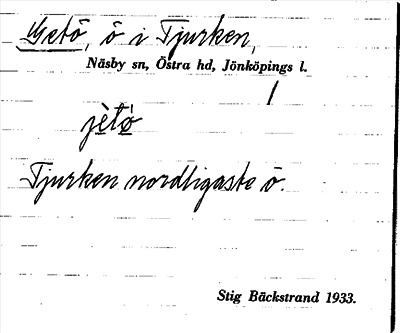 Getö, ö i Tjurken,
Näsby sn, Östra hd, Jönköpings l.
/
jètö́
Tjurken nordligaste ö.
Stig Bäckstrand 1933.